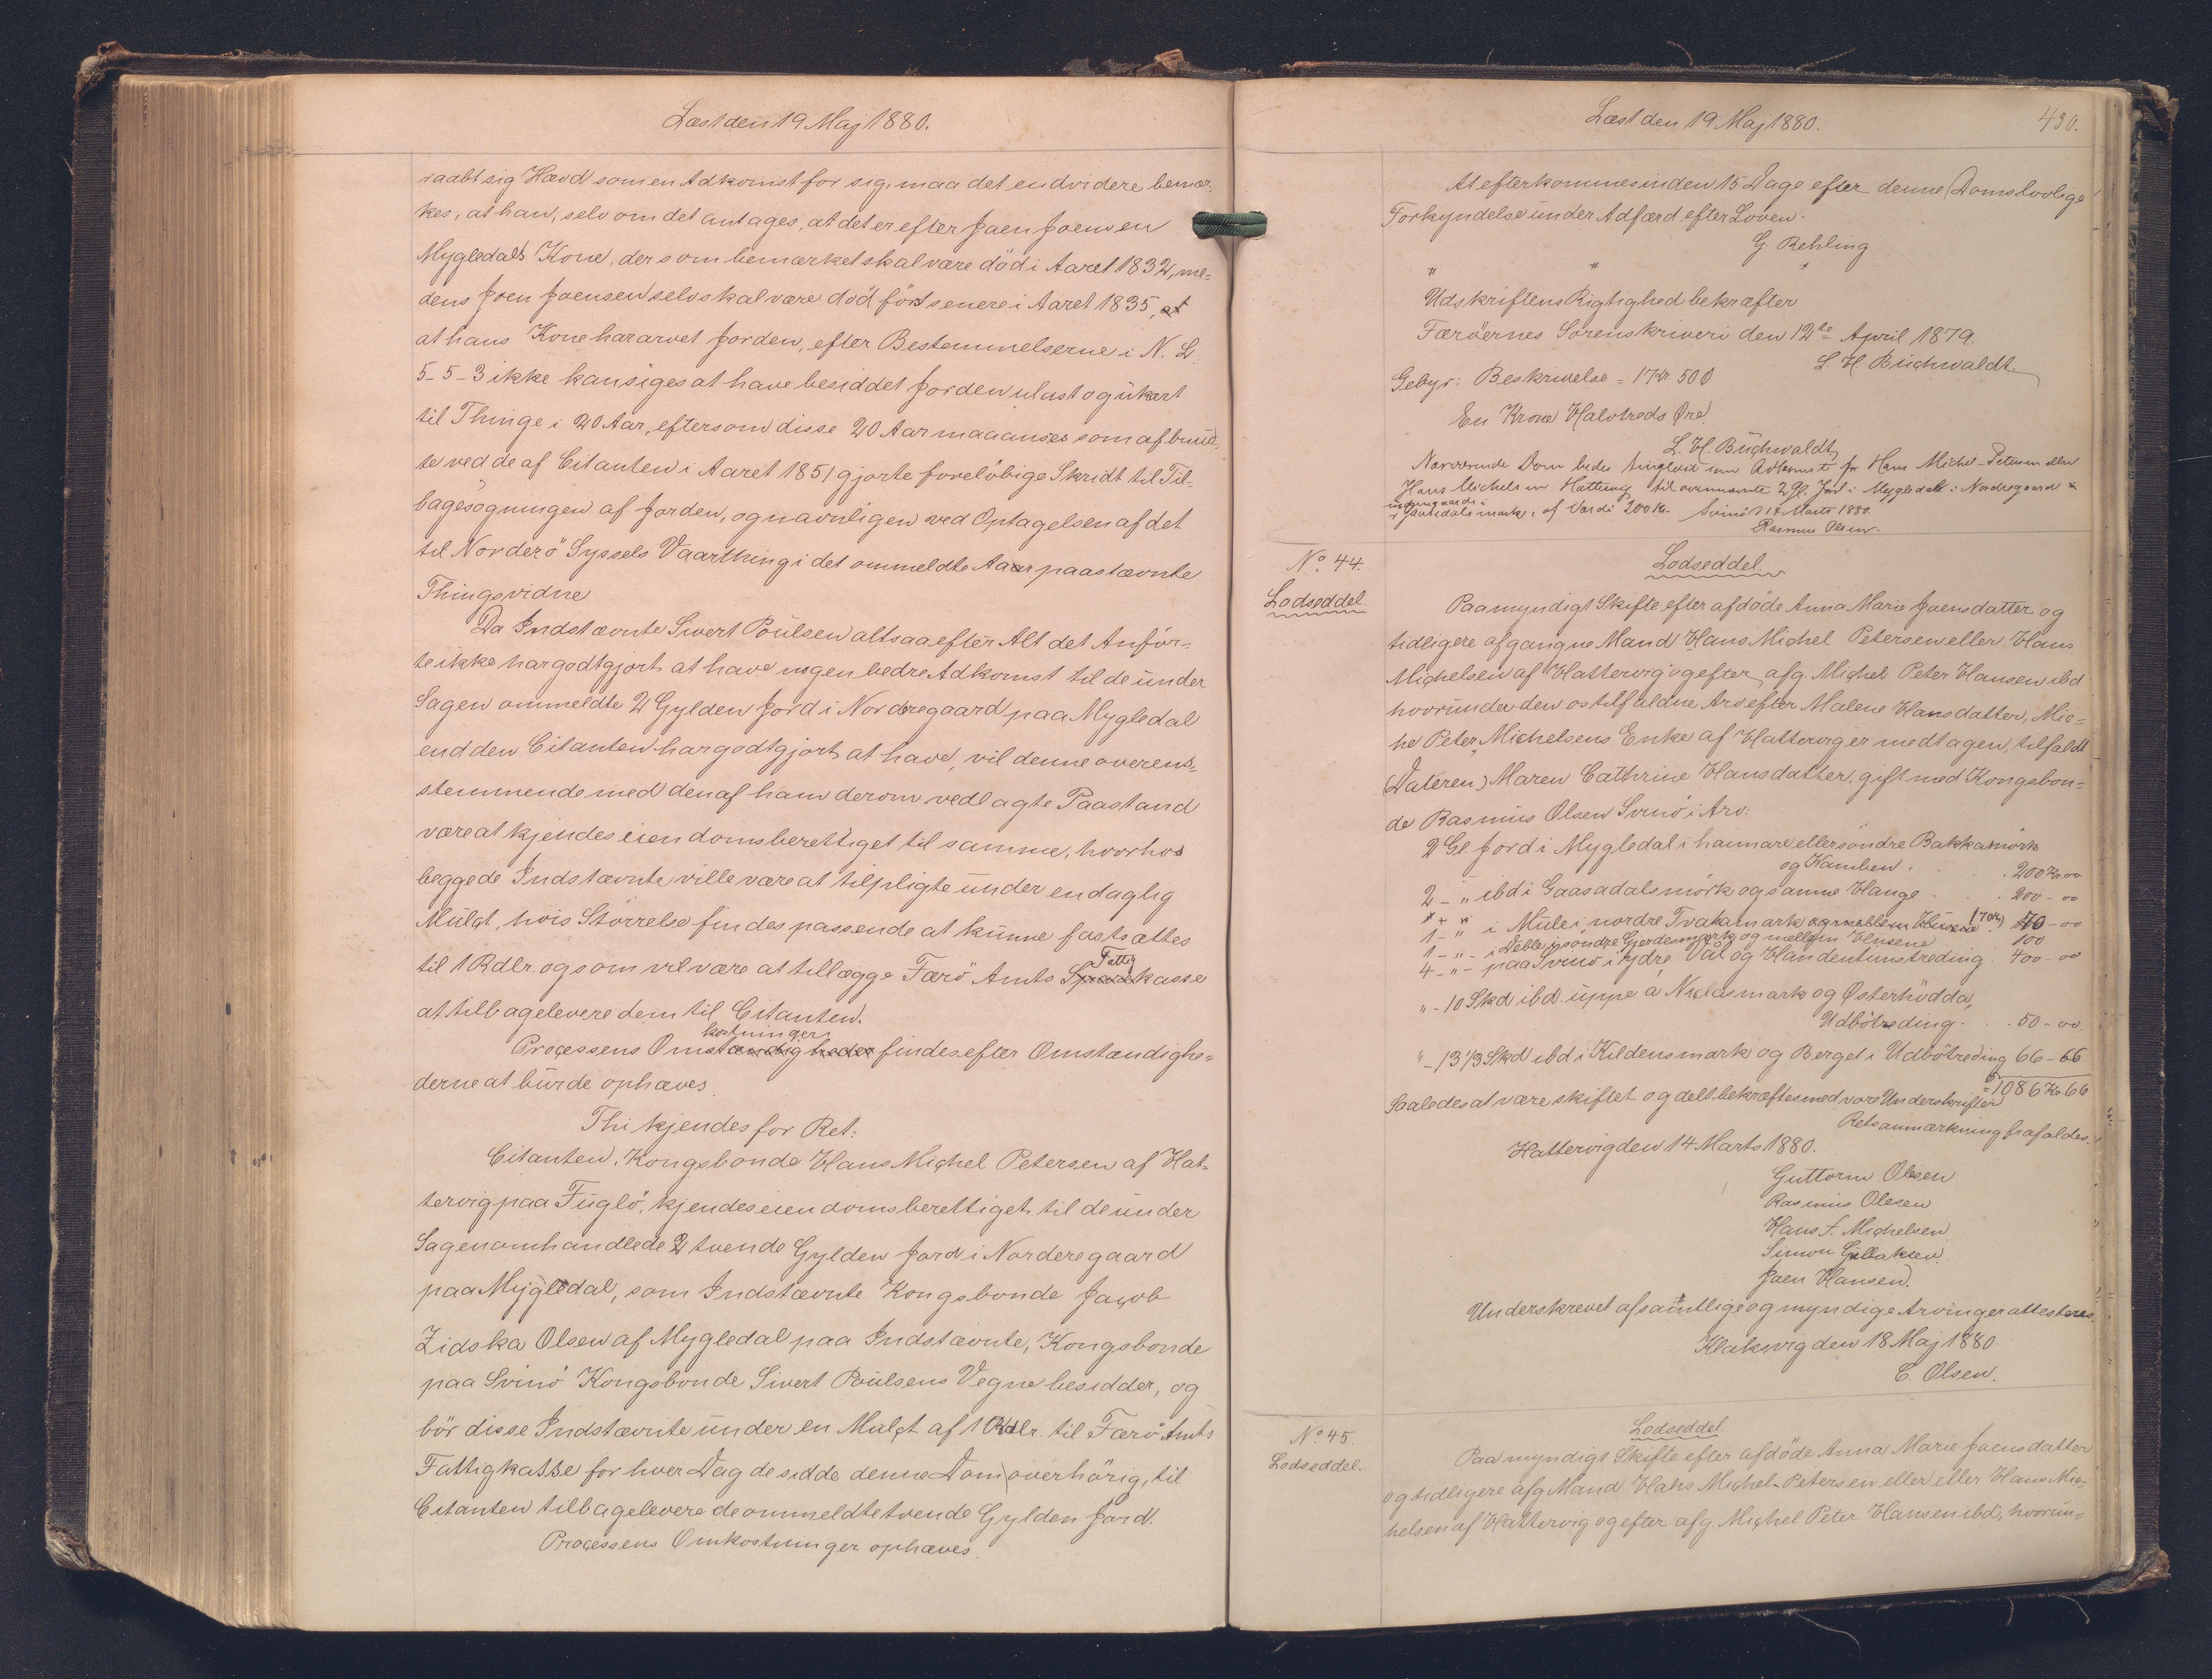 Læst den 19 Maj 1880.
raabt sig Hævd som en Adkomst for sig, maa det endvidere bemær-
kes, at han, selv om det antages, at det er efter Joen Joensen
Mygledals Kone, der som bemærket skal være död i Aaret 1832, me-
dens Joen Joensen selv skal være död först senere i Aaret 1835, at
at hans Kone har arvet Jorden, efter Bestemmelserne i N. L.
5-5-3 ikke kan siges at have besiddet Jorden ulast og ukært
til Thinge i 20 Aar, eftersom disse 20 Aar maa anses som afbrud-
te ved de af Citanten i Aaret 1851 gjorte forelöbige Skridt til Til-
bagesøgningen af Jorden, og navnligen ved Optagelsen af det
til Norderö Syssels Vaarthing i det ommeldte Aar paastævnte
Thingsvidne
Da Indstævnte Sivert Poulsen altsaa efter Alt det Anför-
te ikke har godtgjort at have nogen bedre Adkomst til de under
Sagen ommeldte 2 Gylden Jord i Norderegaard paa Mygledal
end den Citanten har godtgjort at have, vil denne overens-
stemmende med den af ham derom vedlagte Paastand
være at kjendes eiendomsberettiget til samme, hvorhos
begge de Indstævnte ville være at tilpligte under en daglig
Mulct, hvis Störrelse findes passende at kunne fastsættes
til 1 Rdlr. og som vil være at tillægge Færö Amts Sparekasse
Fattig
at tilbagelevere dem til Citanten.
kostninger
Processens Omstændigheder findes efter Omstændighe-
derne at burde ophæves.
Thi kjendes for Ret:
Citanten, Kongsbonde Hans Michel Petersen af Hat-
tervig paa Fuglö, kjendes eiendomsberettiget til de under
Sagen omhandlede 2 tvende Gylden Jord i Norderegaard
paa Mygledal, som Indstævnte Kongsbonde Jacob
Zidska Olsen af Mygledal paa Indstævnte, Kongsbonde
paa Svinö Kongsbonde Sivert Poulsens Vegne besidder, og
bör disse Indstævnte under en Mulct af 1 Rdlr. til Færö Amts
Fattigkasse for hver Dag de sidde denne Dom overhörig, til
Citanten tilbagelevere de ommeldte tvende Gylden Jord.
Processens Omkostninger ophæves.
Læst den 19 Maj 1880.
430.
At efterkommes inden 15 Dage efter denne Doms lovlige
Forkyndelse under Adfærd efter Loven.
G. Behling
" " "
Udskriftens Rigtighed bekræfter
Færöernes Sorenskriveri den 12te April 1879.
L. H. Buchwaldt.
Gebyr: Beskrivelse = 1 Kr. 50 Ø
En Krone Halvtreds Øre
L. H. Buchwaldt
Nærværende Dom bedes tinglæst som Adkomst for Hans Michel Petersen eller
Hans Michelsen Hattervig til ovennævnte 2 Gl. Jord i Mygledal i Nordregaard
i Gaasedalsmark, af Værdi 200 Kr. Svinö d. 17 Marts 1880.
Rasmus Olsen.
No. 44.
Lodseddel.
Lodseddel.
Paa myndigt Skifte efter afdöde Anna Marie Joensdatter og
tidligere afgangne Mand Hans Michel Petersen eller Hans
Michelsen af Hattervig og efter afg. Michel Peter Hansen ibd
hvorunder den os tilfaldne Arv efter Malene Hansdatter, Mic-
hel Peter Michelsens Enke af Hattervig er medtagen, tilfaldt
(Datéren) Maren Cathrine Hansdatter, gift med Kongsbon-
de Rasmus Olsen Svinö i Arv:
2 Gl. Jord i Mygledal i haimare eller söndre Bakkamörk
og Kamben . . . 200 Kr. 00
2 - " ibd i Gaasadalsmörk og samme Hauge . . 200 - 00
1 - " i Mule i nordre Tvatamark og mellem Husene (70 Kr) 70 - 00
1 - " - i Deble i söndre Gjerdemørk og mellem Husene 100
4 - " - paa Svinö i Ydre Vaal og Handentunstreding. 400 - 00
" - 10 Skd ibd. uppe a Niclasmark og Østerhödda,
Udbötreding. . . 50 - 00.
" - 13 1/3 Skd ibd i Kildensmark og Berget i Udbötreding 66 - 66
= 1086 Kr. 66
Saaledes at være skiftet og delt bekræftes med vore Underskrifter
Retsanmærkning frafaldes.
Hattervig den 14 Marts 1880.
Guttorm Olesen
Rasmus Olesen
Hans F. Michelsen
Simon Gullaksen
Joen Hansen.
Underskrevet af samtlige og myndige Arvinger attesteres.
Klaksvig den 18 Maj 1880.
C. Olsen.
No. 45.
Lodseddel.
Lodseddel
Paa myndigt Skifte efter afdöde Anna Marie Joensdatter
og tidligere afg Mand Hans Michel Petersen eller eller Hans Mic-
helsen af Hattervig og efter afg Michel Peter Hansen ibd, hvorun-